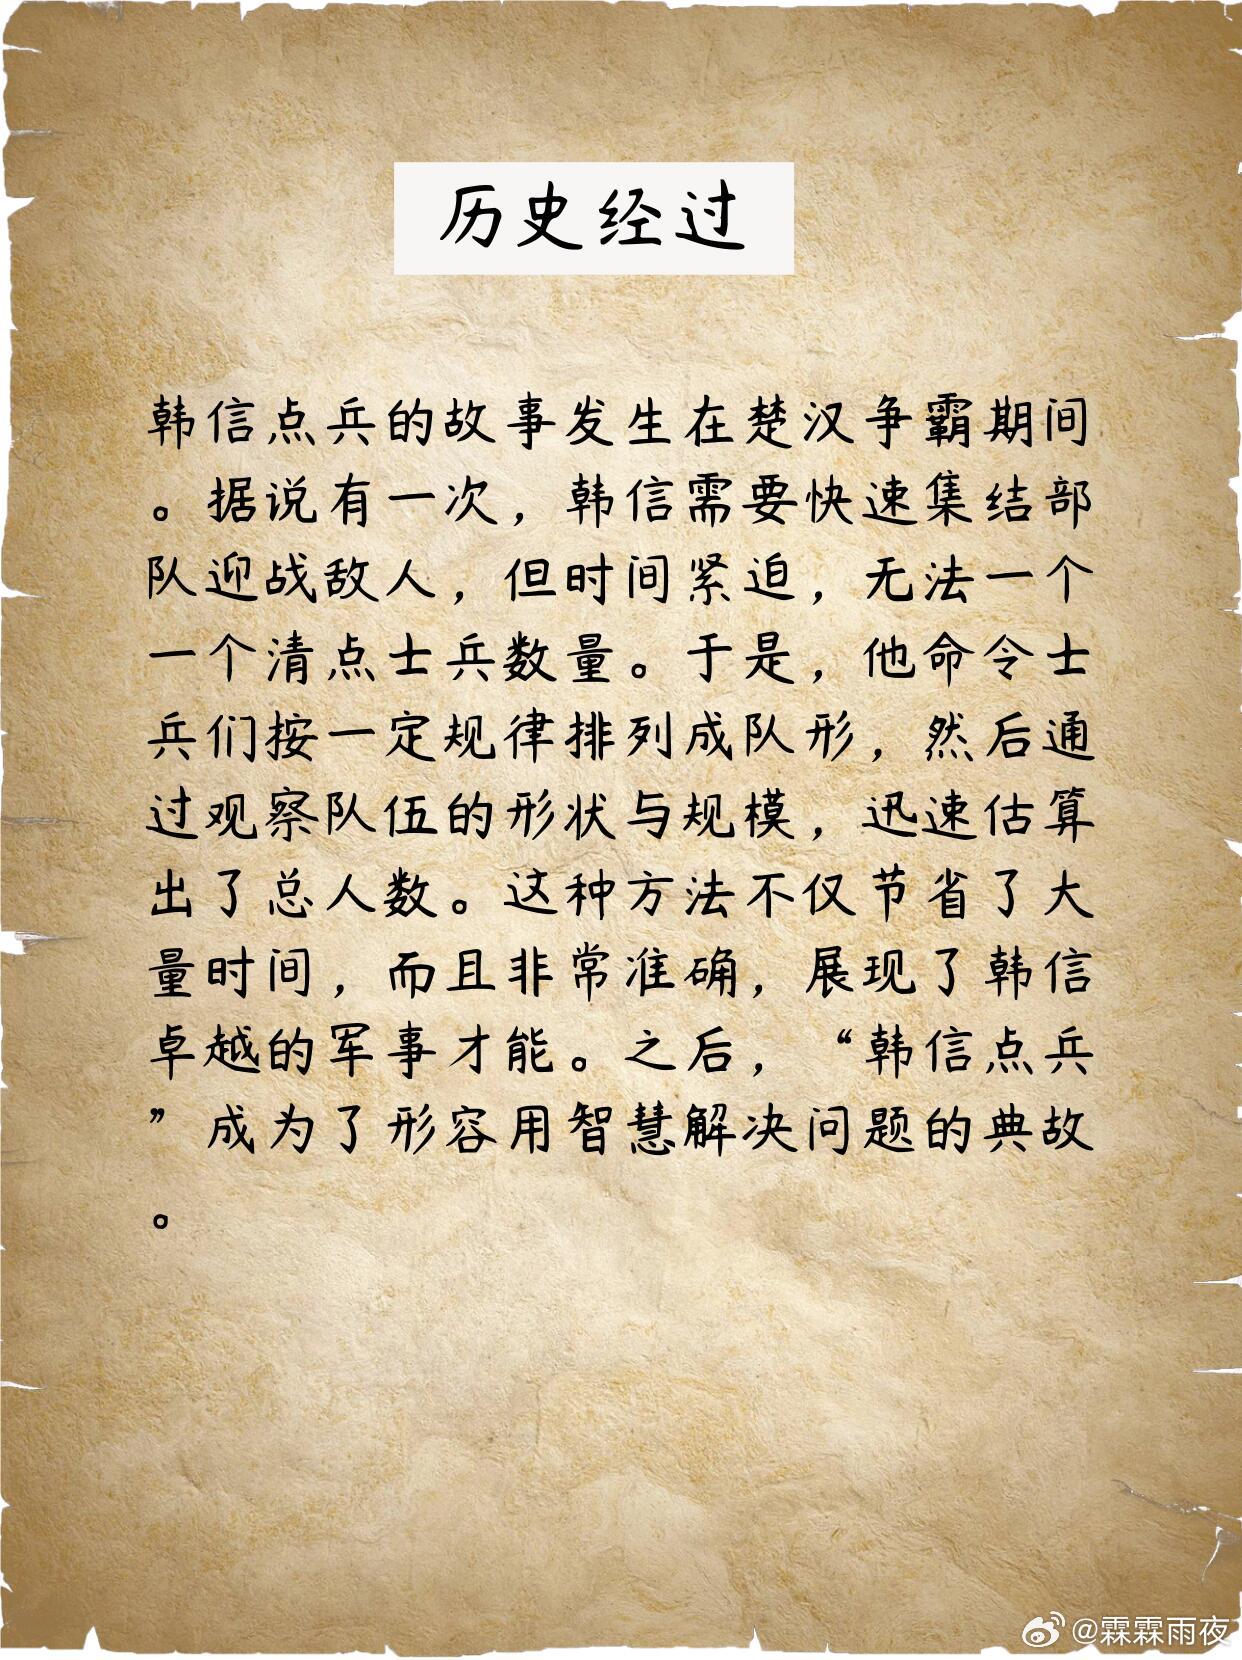 历史经过
韩信点兵的故事发生在楚汉争霸期间
。据说有一次，韩信需要快速集结部
队迎战敌人，但时间紧迫，无法一个
一个清点士兵数量。于是，他命令士
兵们按一定规律排列成队形，然后通
过观察队伍的形状与规模，迅速估算
出了总人数。这种方法不仅节省了大
量时间，而且非常准确，展现了韩信
卓越的军事才能。之后，“韩信点兵
”成为了形容用智慧解决问题的典故
。
@霖霖雨夜